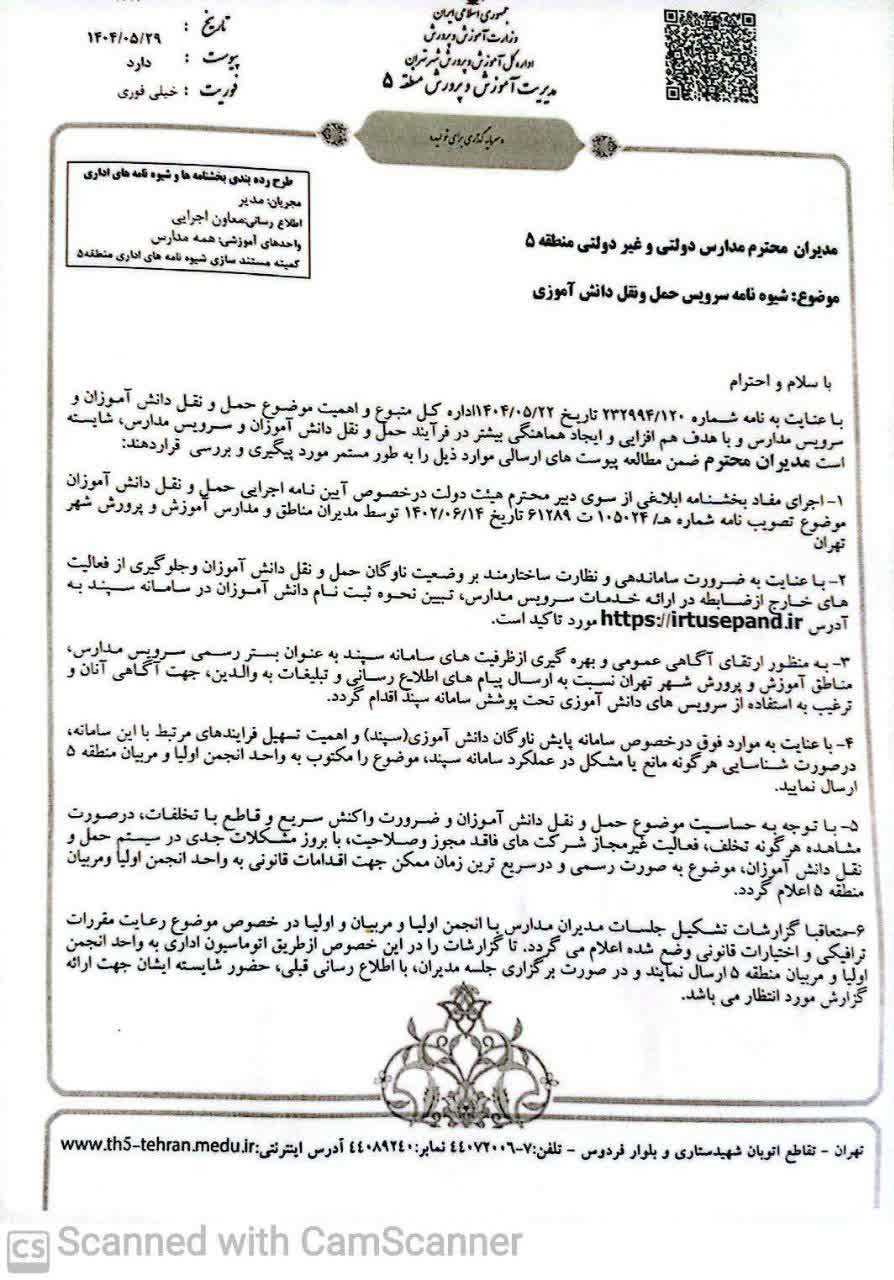 جمهوری اسلامی ایران
وزارت آموزش و پرورش
اداره کل آموزش و پرورش شهر تهران
مدیریت آموزش و پرورش منطقه ۵
تاریخ : ۱۴۰۴/۰۵/۲۹
پیوست : دارد
فوریت : خیلی فوری
«سرمایه گذاری برای تولید»
طرح رده بندی بخشنامه ها و شیوه نامه های اداری
مجریان: مدیر
اطلاع رسانی:معاون اجرایی
واحدهای آموزشی: همه مدارس
کمیته مستند سازی شیوه نامه های اداری منطقه۵
مدیران محترم مدارس دولتی و غیر دولتی منطقه ۵
موضوع: شیوه نامه سرویس حمل ونقل دانش آموزی
با سلام و احترام
با عنایت به نامه شماره ۲۳۲۹۹۴/۱۲۰ تاریخ ۱۴۰۴/۰۵/۲۲اداره کل متبوع و اهمیت موضوع حمل و نقل دانش آموزان و
سرویس مدارس و با هدف هم افزایی و ایجاد هماهنگی بیشتر در فرآیند حمل و نقل دانش آموزان و سرویس مدارس، شایسته
است مدیران محترم ضمن مطالعه پیوست های ارسالی موارد ذیل را به طور مستمر مورد پیگیری و بررسی قراردهند:
۱- اجرای مفاد بخشنامه ابلاغی از سوی دبیر محترم هیئت دولت درخصوص آیین نامه اجرایی حمل و نقل دانش آموزان
موضوع تصویب نامه شماره هـ/ ۱۰۵۰۲۴ ت ۶۱۲۸۹ تاریخ ۱۴۰۲/۰۶/۱۴ توسط مدیران مناطق و مدارس آموزش و پرورش شهر
تهران
۲- با عنایت به ضرورت ساماندهی و نظارت ساختارمند بر وضعیت ناوگان حمل و نقل دانش آموزان وجلوگیری از فعالیت
های خارج ازضابطه در ارائه خدمات سرویس مدارس، تبیین نحوه ثبت نام دانش آموزان در سامانه سپند به
آدرس https://irtusepand.ir مورد تاکید است.
۳- به منظور ارتقای آگاهی عمومی و بهره گیری ازظرفیت های سامانه سپند به عنوان بستر رسمی سرویس مدارس،
مناطق آموزش و پرورش شهر تهران نسبت به ارسال پیام های اطلاع رسانی و تبلیغات به والدین، جهت آگاهی آنان و
ترغیب به استفاده از سرویس های دانش آموزی تحت پوشش سامانه سپند اقدام گردد.
۴- با عنایت به موارد فوق درخصوص سامانه پایش ناوگان دانش آموزی(سپند) و اهمیت تسهیل فرایندهای مرتبط با این سامانه،
درصورت شناسایی هرگونه مانع یا مشکل در عملکرد سامانه سپند، موضوع را مکتوب به واحد انجمن اولیا و مربیان منطقه ۵
ارسال نمایید.
۵- با توجه به حساسیت موضوع حمل و نقل دانش آموزان و ضرورت واکنش سریع و قاطع با تخلفات، درصورت
مشاهده هرگونه تخلف، فعالیت غیرمجاز شرکت های فاقد مجوز وصلاحیت، یا بروز مشکلات جدی در سیستم حمل و
نقل دانش آموزان، موضوع به صورت رسمی و درسریع ترین زمان ممکن جهت اقدامات قانونی به واحد انجمن اولیا ومربیان
منطقه ۵ اعلام گردد.
۶-متعاقبا گزارشات تشکیل جلسات مدیران مدارس با انجمن اولیا و مربیان و اولیا در خصوص موضوع رعایت مقررات
ترافیکی و اختیارات قانونی وضع شده اعلام می گردد. تا گزارشات را در این خصوص ازطریق اتوماسیون اداری به واحد انجمن
اولیا و مربیان منطقه ۵ ارسال نمایند و در صورت برگزاری جلسه مدیران، با اطلاع رسانی قبلی، حضور شایسته ایشان جهت ارائه
گزارش مورد انتظار می باشد.
تهران - تقاطع اتوبان شهیدستاری و بلوار فردوس - تلفن:۷-۴۴۰۷۲۰۰۶ نمابر:۴۴۰۸۹۲۴۰ آدرس اینترنتی:www.th5-tehran.medu.ir
CS Scanned with CamScanner